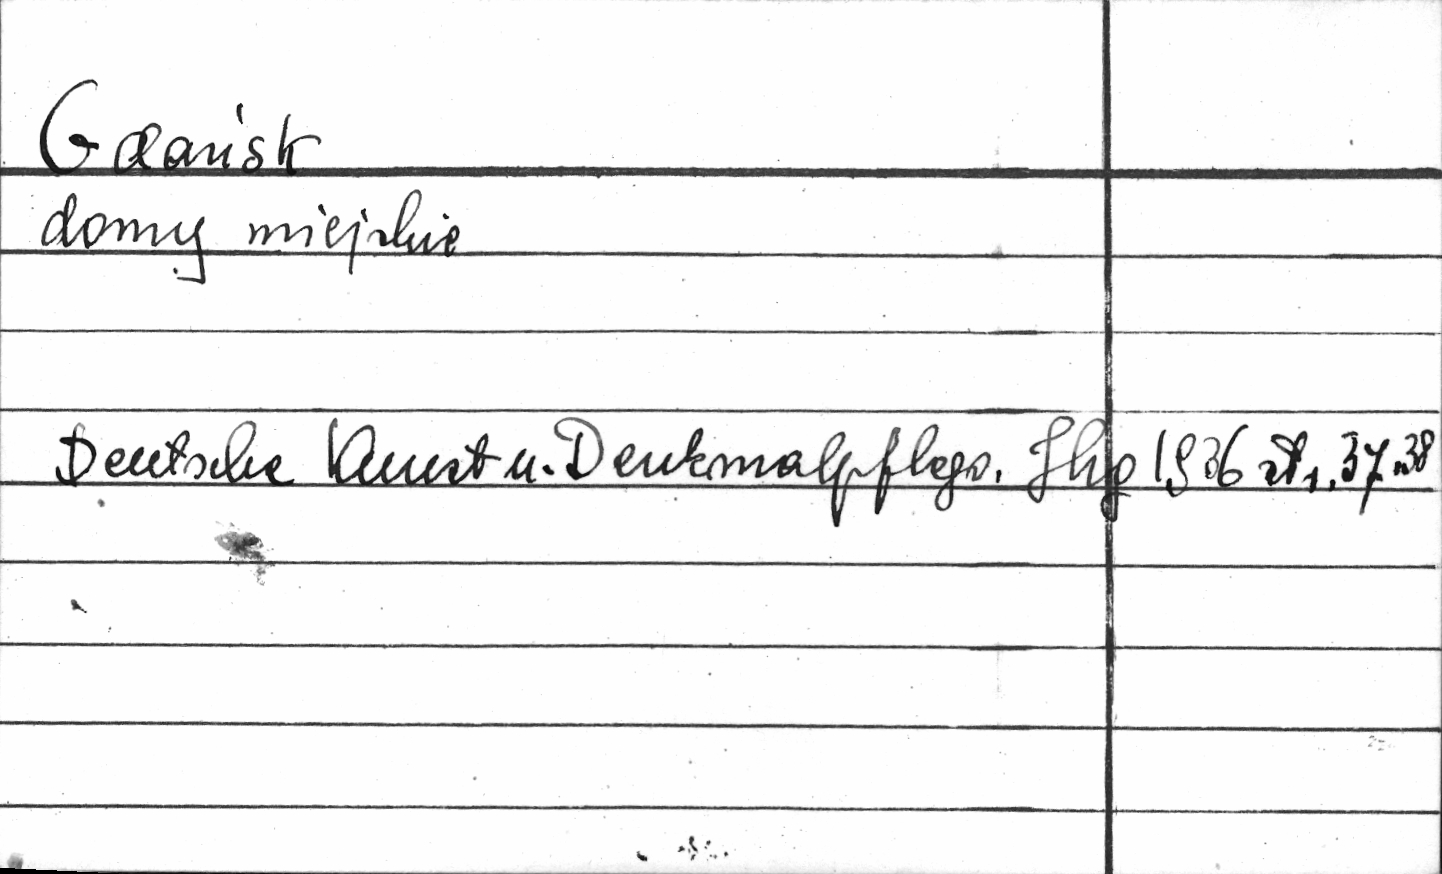 Gdańsk
domy miejskie
Deutsche Kunst u. Denkmalpflege. Jhg 1936 str. 37.38